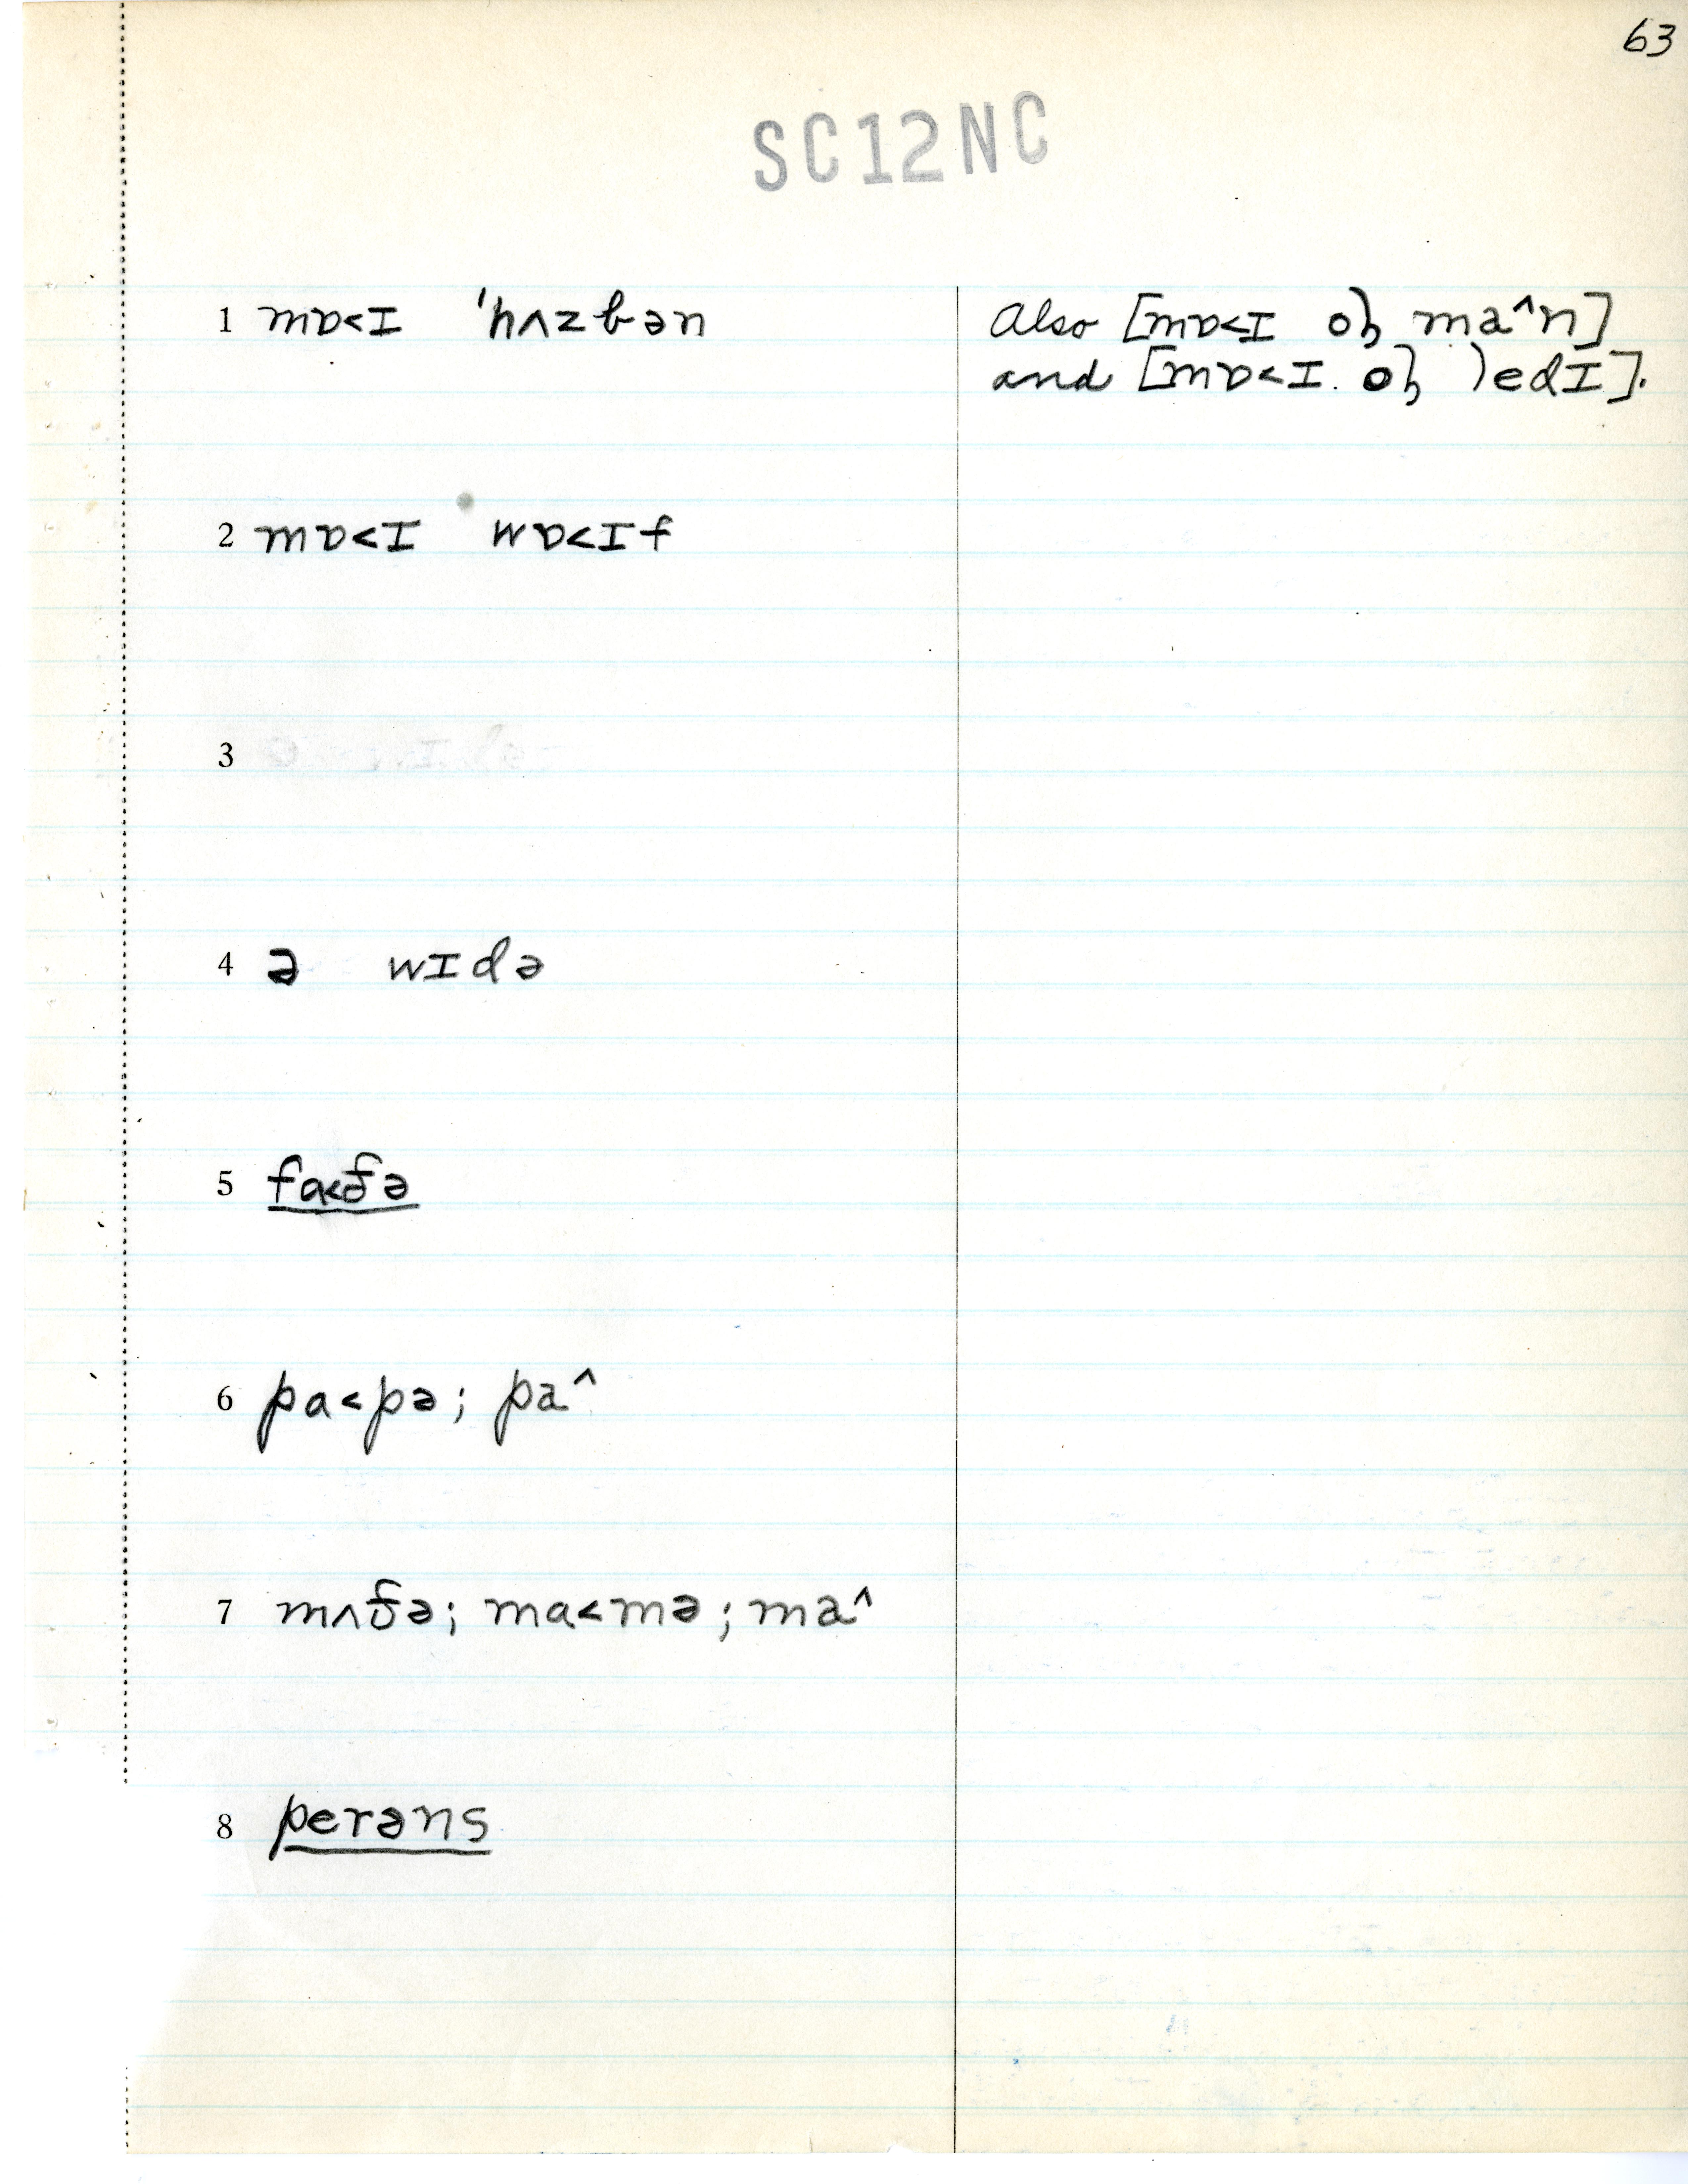 63
SC12NC
1 mɒ<ɪ 'hʌzbən
Also [mɒ<ɪ ol̡ ma^n]
and [mɒ<ɪ ol̡ ledɪ].
2 mɒ<ɪ wɒ<ɪf
3
4 ə wɪdə
5 fɑ<ðə
6 pɑ<pə; pa^
7 mʌðə; mɑ<mə; ma^
8 perəns